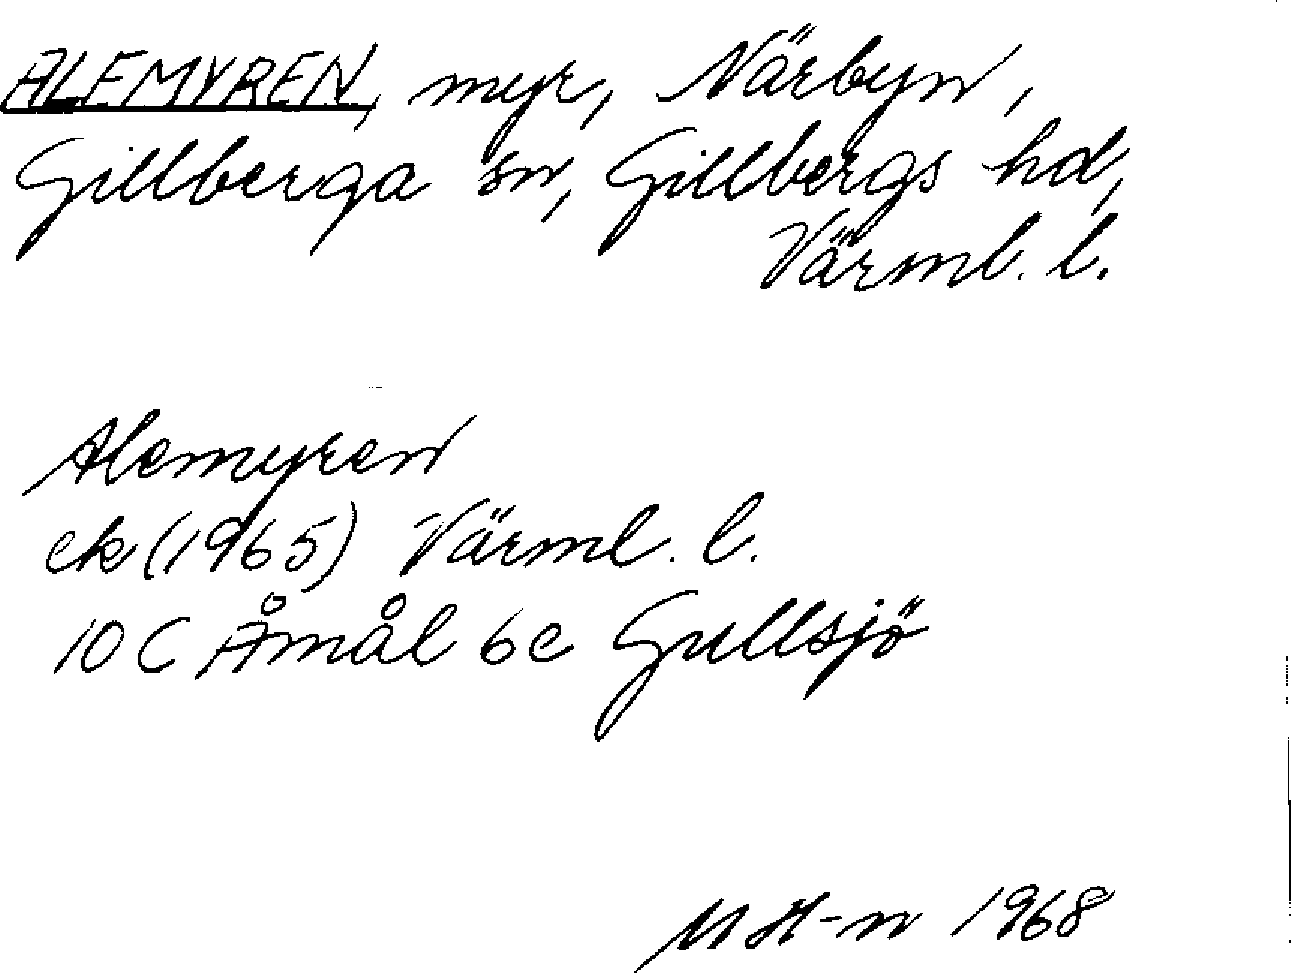 ALEMYREN, myr, Närbyn,
Gillberga sn, Gillbergs hd,
Värml. l.
Alemyren
ek (1965) Värml. l.
10 C Åmål 6e Gullsjö
M H-n 1968